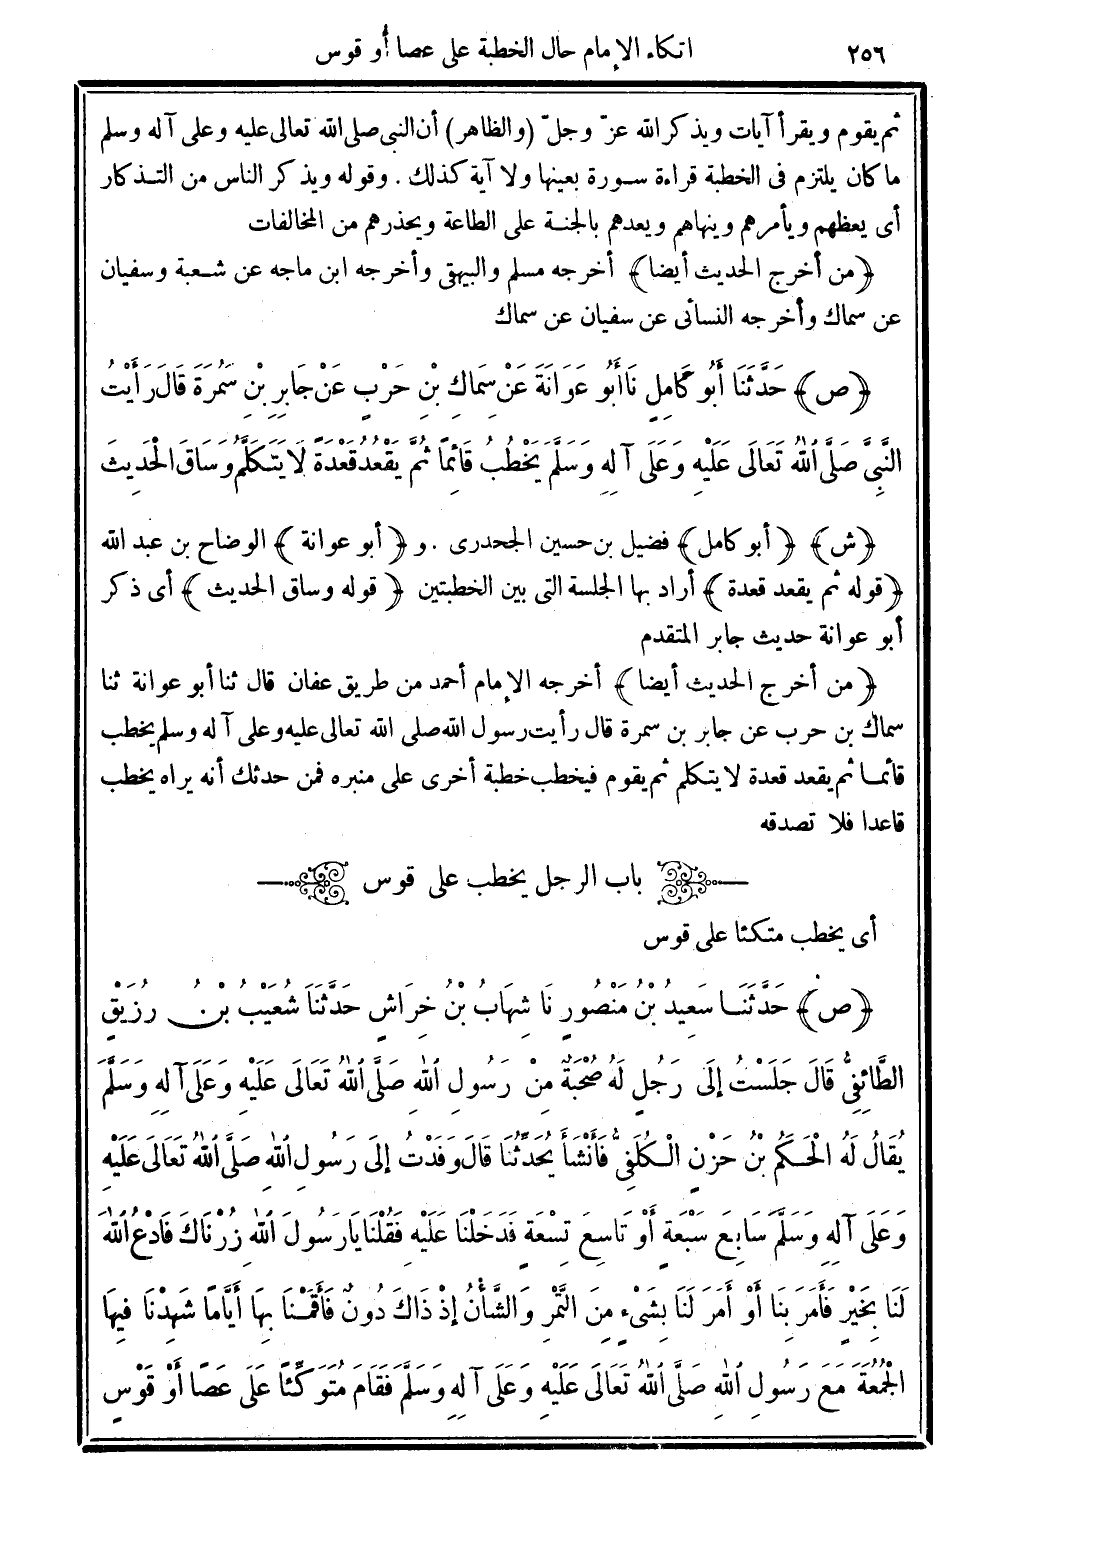 ٢٥٦ اتكاء الإمام حال الخطبة على عصا أو قوس
ثم يقوم ويقرأ آيات ويذكر الله عزّ وجلّ (والظاهر) أن النبى صلى الله تعالى عليه وعلى آله وسلم
ما كان يلتزم فى الخطبة قراءة سورة بعينها ولا آية كذلك . وقوله ويذكر الناس من التذكار
أى يعظهم ويأمرهم وينهاهم ويعدهم بالجنة على الطاعة ويحذرهم من المخالفات
﴿من أخرج الحديث أيضا﴾ أخرجه مسلم والبيهقى وأخرجه ابن ماجه عن شعبة وسفيان
عن سماك وأخرجه النسائى عن سفيان عن سماك
﴿ص﴾ حَدَّثَنَا أَبُو كَامِلٍ نَا أَبُو عَوَانَةَ عَنْ سِمَاكِ بْنِ حَرْبٍ عَنْ جَابِرِ بْنِ سَمُرَةَ قَالَ رَأَيْتُ
النَّبِىَّ صَلَّى اللهُ تَعَالَى عَلَيْهِ وَعَلَى آلِهِ وَسَلَّمَ يَخْطُبُ قَائِمًا ثُمَّ يَقْعُدُ قَعْدَةً لَا يَتَكَلَّمُ وَسَاقَ الْحَدِيثَ
﴿ش﴾ ﴿أبو كامل﴾ فضيل بن حسين الجحدرى . و ﴿أبو عوانة﴾ الوضاح بن عبد الله
﴿قوله ثم يقعد قعدة﴾ أراد بها الجلسة التى بين الخطبتين ﴿قوله وساق الحديث﴾ أى ذكر
أبو عوانة حديث جابر المتقدم
﴿من أخرج الحديث أيضا﴾ أخرجه الإمام أحمد من طريق عفان قال ثنا أبو عوانة ثنا
سماك بن حرب عن جابر بن سمرة قال رأيت رسول الله صلى الله تعالى عليه وعلى آله وسلم يخطب
قائما ثم يقعد قعدة لا يتكلم ثم يقوم فيخطب خطبة أخرى على منبره فمن حدثك أنه يراه يخطب
قاعدا فلا تصدقه
باب الرجل يخطب على قوس
أى يخطب متكئا على قوس
﴿ص﴾ حَدَّثَنَا سَعِيدُ بْنُ مَنْصُورٍ نَا شِهَابُ بْنُ خِرَاشٍ حَدَّثَنَا شُعَيْبُ بْنُ رُزَيْقٍ
الطَّائِفِىُّ قَالَ جَلَسْتُ إِلَى رَجُلٍ لَهُ صُحْبَةٌ مِنْ رَسُولِ اللهِ صَلَّى اللهُ تَعَالَى عَلَيْهِ وَعَلَى آلِهِ وَسَلَّمَ
يُقَالُ لَهُ الْحَكَمُ بْنُ حَزْنٍ الْكُلَفِىُّ فَأَنْشَأَ يُحَدِّثُنَا قَالَ وَفَدْتُ إِلَى رَسُولِ اللهِ صَلَّى اللهُ تَعَالَى عَلَيْهِ
وَعَلَى آلِهِ وَسَلَّمَ سَابِعَ سَبْعَةٍ أَوْ تَاسِعَ تِسْعَةٍ فَدَخَلْنَا عَلَيْهِ فَقُلْنَا يَا رَسُولَ اللهِ زُرْنَاكَ فَادْعُ اللهَ
لَنَا بِخَيْرٍ فَأَمَرَ بِنَا أَوْ أَمَرَ لَنَا بِشَىْءٍ مِنَ التَّمْرِ وَالشَّأْنُ إِذْ ذَاكَ دُونٌ فَأَقَمْنَا بِهَا أَيَّامًا شَهِدْنَا فِيهَا
الْجُمُعَةَ مَعَ رَسُولِ اللهِ صَلَّى اللهُ تَعَالَى عَلَيْهِ وَعَلَى آلِهِ وَسَلَّمَ فَقَامَ مُتَوَكِّئًا عَلَى عَصًا أَوْ قَوْسٍ